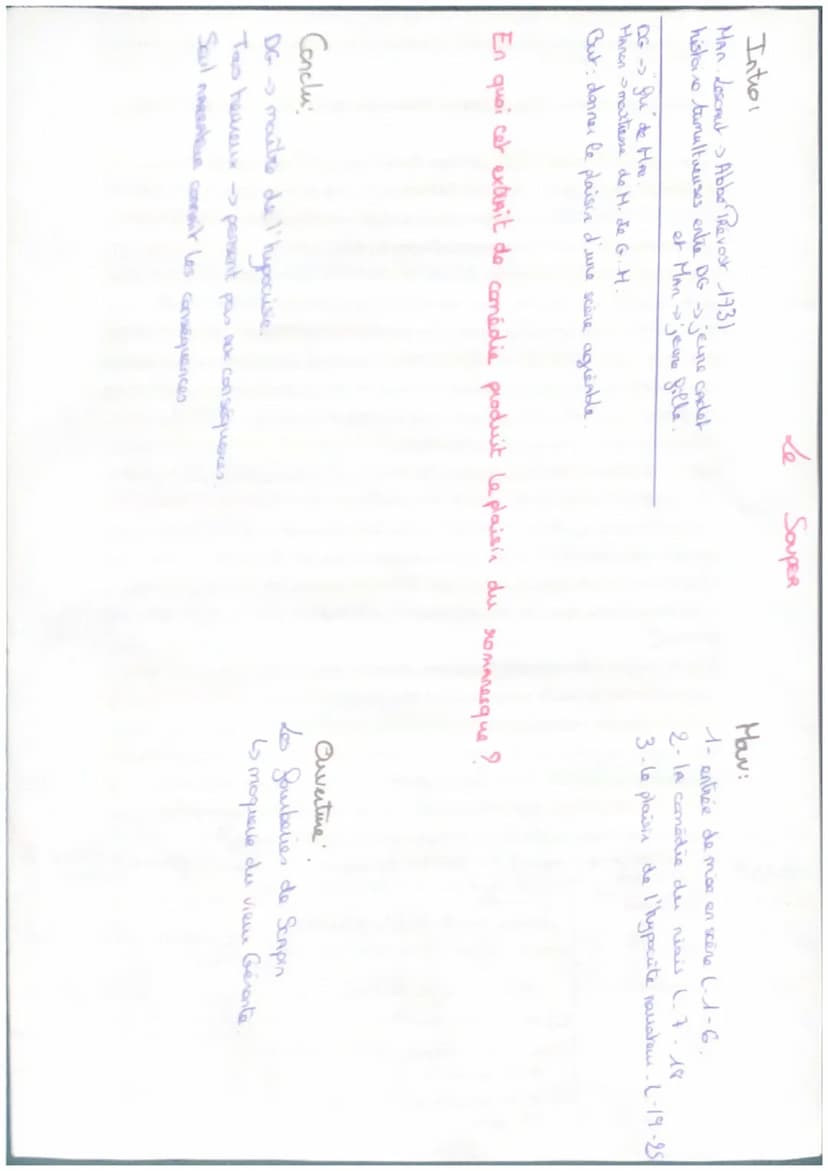 Le Souper
Intro:
Man. Lescaut -> Abbé Prévost 1731
histoire tumultueuses entre DG -> jeune cadet
et Man -> jeune fille.
DG -> de Man.
Manon -> maîtresse de M. de G. M.
But: donner le plaisir d'une scène agréable.
Mouv:
1 - entrée de mise en scène L.1-6.
2 - la comédie du niais L.7-18
3 - le plaisir de l'hypocrite narrateur - L-19-25
En quoi cet extrait de comédie produit le plaisir du romanesque ?
Conclu:
DG -> maître de l'hypocrisie.
Tous heureux -> pensent pas aux conséquences.
Seul narrateur connaît les conséquences
Ouverture:
Les fourberies de Scapin
↳ moquerie du vieux Géronte.